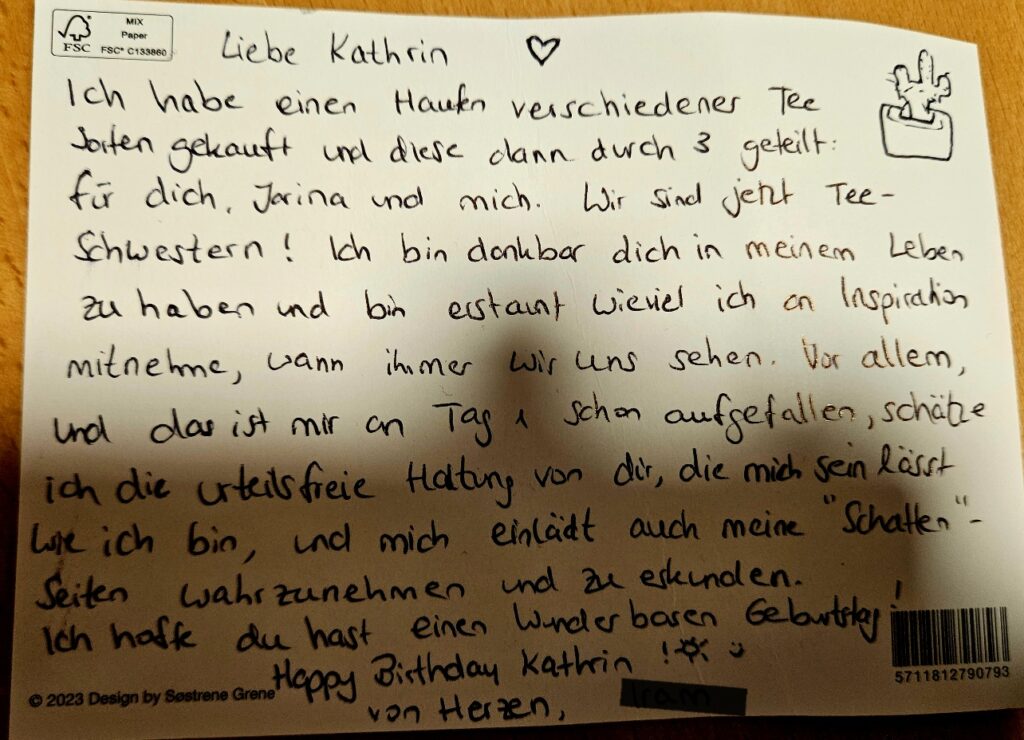 MIX
Paper
FSC
FSC® C133860
Liebe Kathrin ♡
Ich habe einen Haufen verschiedener Tee
Sorten gekauft und diese dann durch 3 geteilt:
für dich, Jarina und mich. Wir sind jetzt Tee-
Schwestern! Ich bin dankbar dich in meinem Leben
zu haben und bin erstaunt wieviel ich an Inspiration
mitnehme, wann immer wir uns sehen. Vor allem,
und das ist mir an Tag 1 schon aufgefallen, schätze
ich die urteilsfreie Haltung von dir, die mich sein lässt
wie ich bin, und mich einlädt auch meine "Schatten"-
Seiten wahrzunehmen und zu erkunden.
Ich hoffe du hast einen Wunderbaren Geburtstag!
Happy Birthday Kathrin !
von Herzen,
© 2023 Design by Søstrene Grene
5711812790793